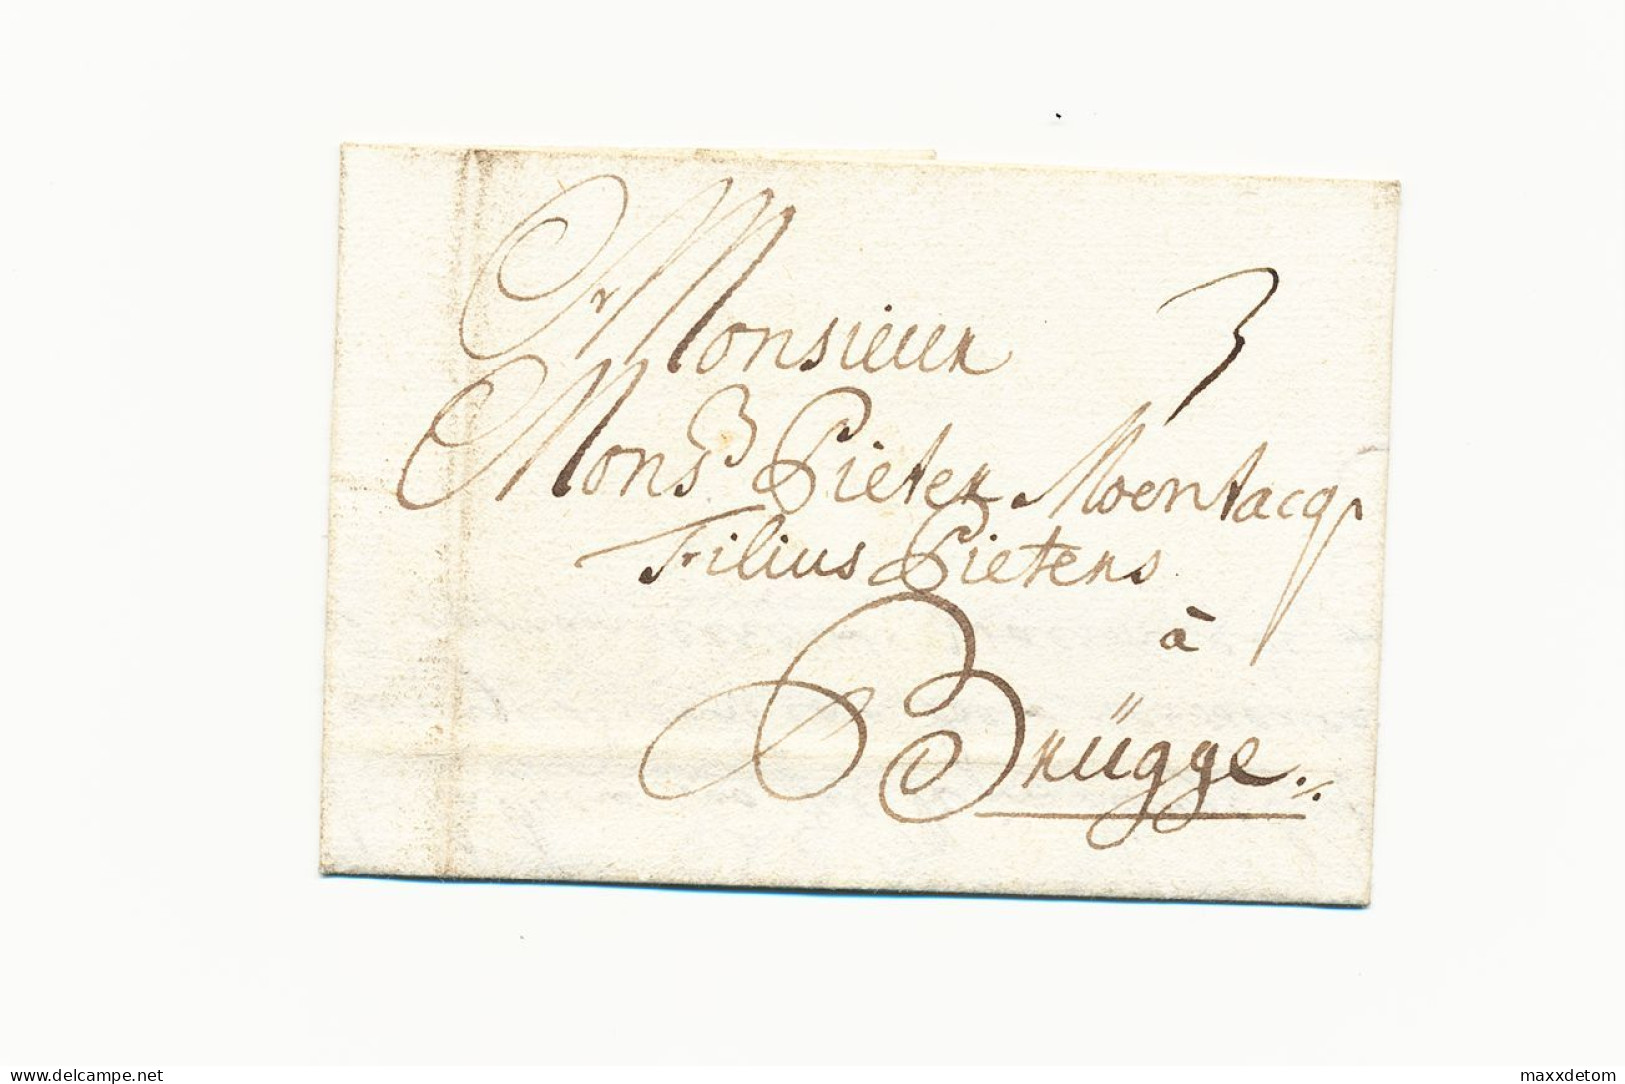 Monsieur
3
Mons.r Pieter Moentacq
Filius Pieters
à
Brügge.
www.delcampe.net
maxxdetom